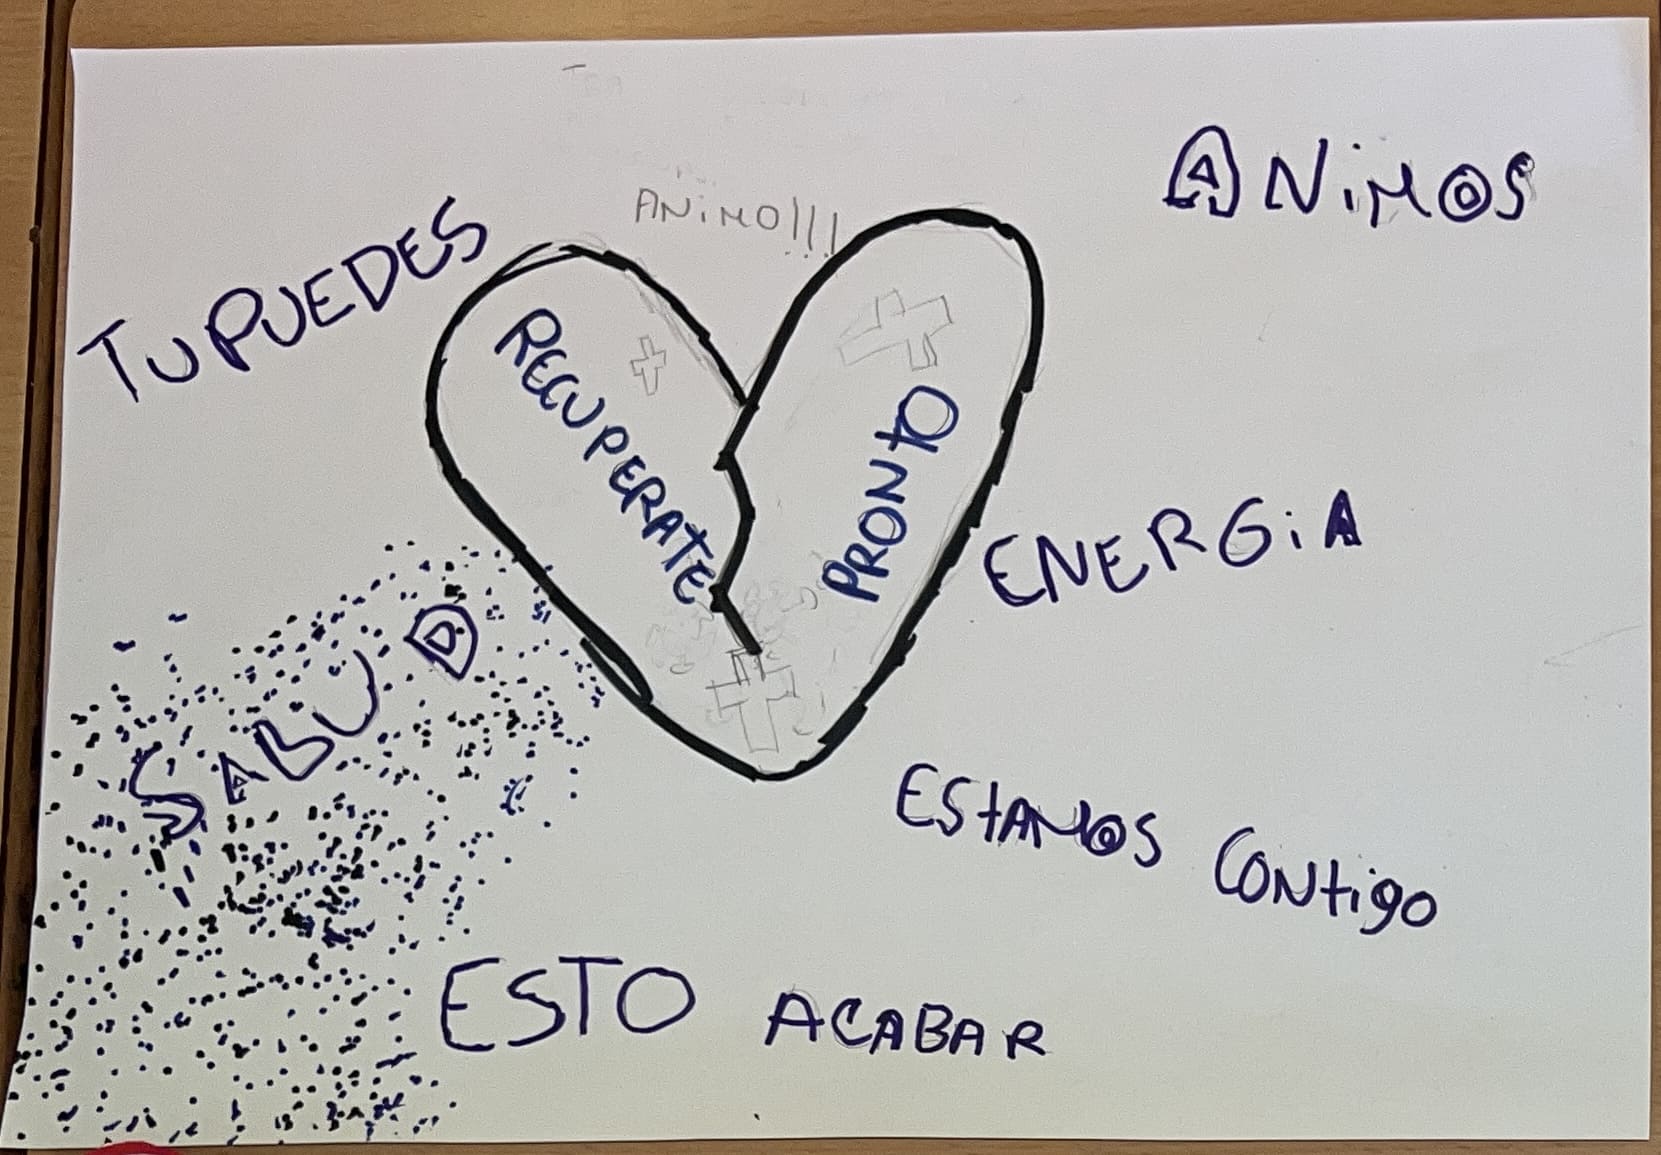 ANiMOS
ANiMO!!!
TU PUEDES
RECUPERATE
PRONtO
ENERGiA
SABUD
EStAMOS CONtigo
ESTO ACABAR